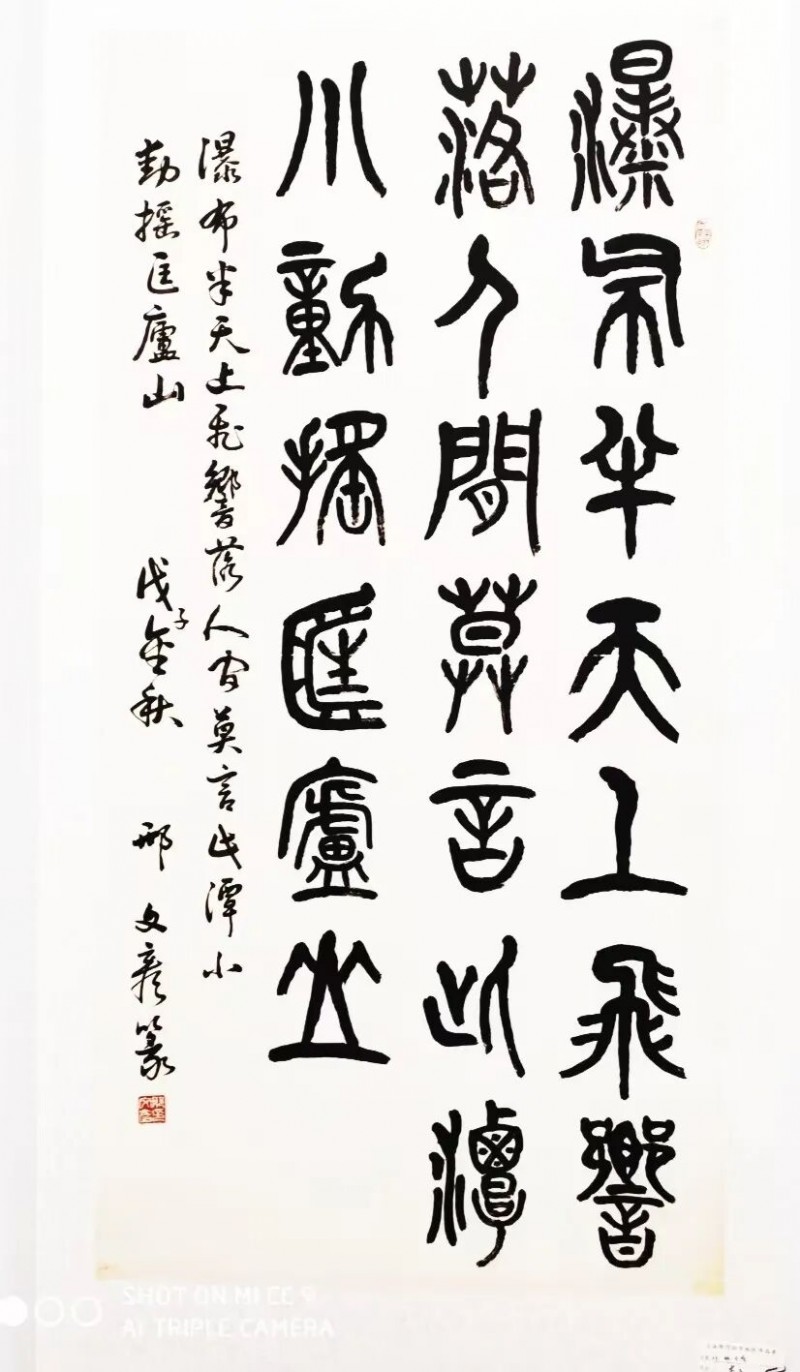 瀑布半天上飛響
落人間莫言此潭
小動搖匡廬山
瀑布半天上飛響落人间莫言此潭小
動搖匡廬山 戊子金秋 邢文彦篆
SHOT ON MI CC 9
AI TRIPLE CAMERA